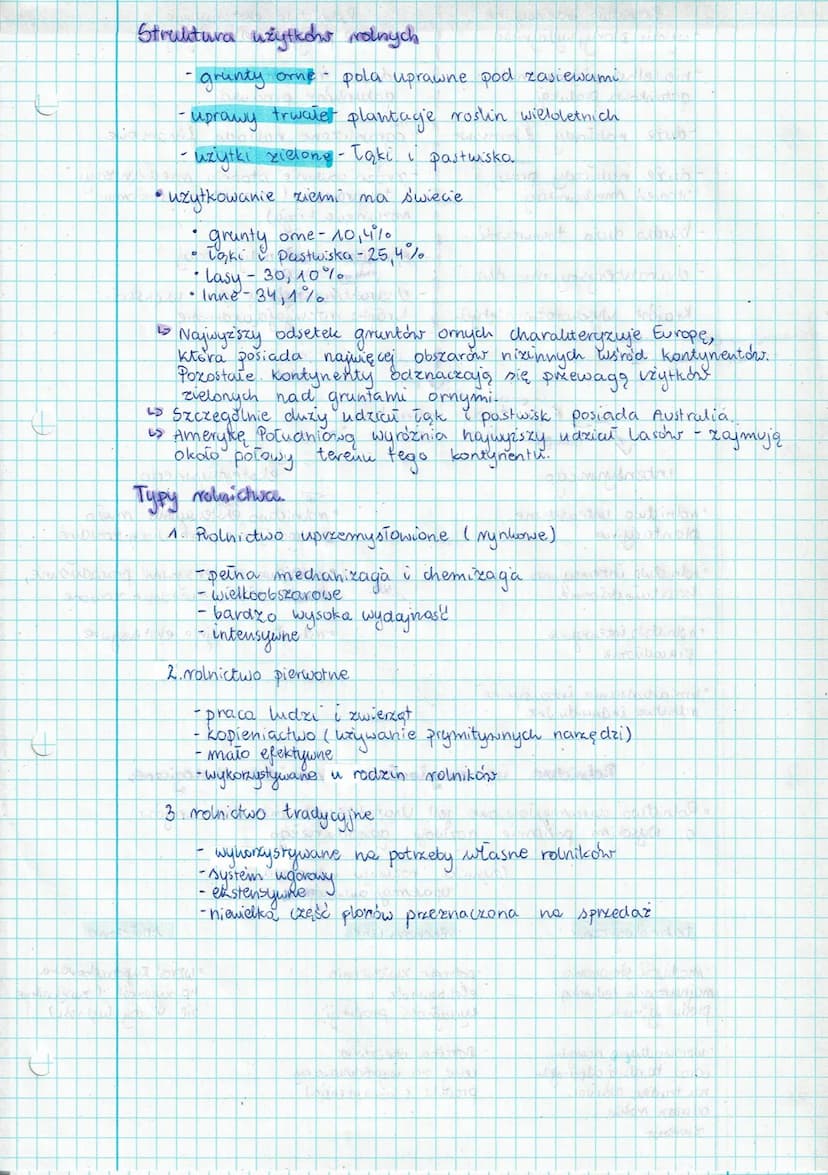 Struktura użytków rolnych
- grunty orne - pola uprawne pod zasiewami
- uprawy trwałe - plantacje roślin wieloletnich
- użytki zielone - Łąki i pastwiska
• użytkowanie ziemi na świecie
• grunty orne - 10,4%
• Łąki i pastwiska - 25,4%
• Lasy - 30,10%
• Inne - 34,1%
↳ Najwyższy odsetek gruntów ornych charakteryzuje Europę,
która posiada najwięcej obszarów nizinnych wśród kontynentów.
Pozostałe kontynenty odznaczają się przewagą użytków
zielonych nad gruntami ornymi.
↳ Szczególnie duży udział łąk i pastwisk posiada Australia.
↳ Amerykę Południową wyróżnia najwyższy udział Lasów - zajmują
około połowy terenu tego kontynentu.
Typy rolnictwa
1. Rolnictwo uprzemysłowione (rynkowe)
- pełna mechanizacja i chemizacja
- wielkoobszarowe
- bardzo wysoka wydajność
- intensywne
2. rolnictwo pierwotne
- praca ludzi i zwierząt
- kopieniactwo (używanie prymitywnych narzędzi)
- mało efektywne
- wykorzystywane u rodzin rolników
3. rolnictwo tradycyjne
- wykorzystywane na potrzeby własne rolników
- system ugorowy
- ekstensywne
- niewielka część plonów przeznaczona na sprzedaż